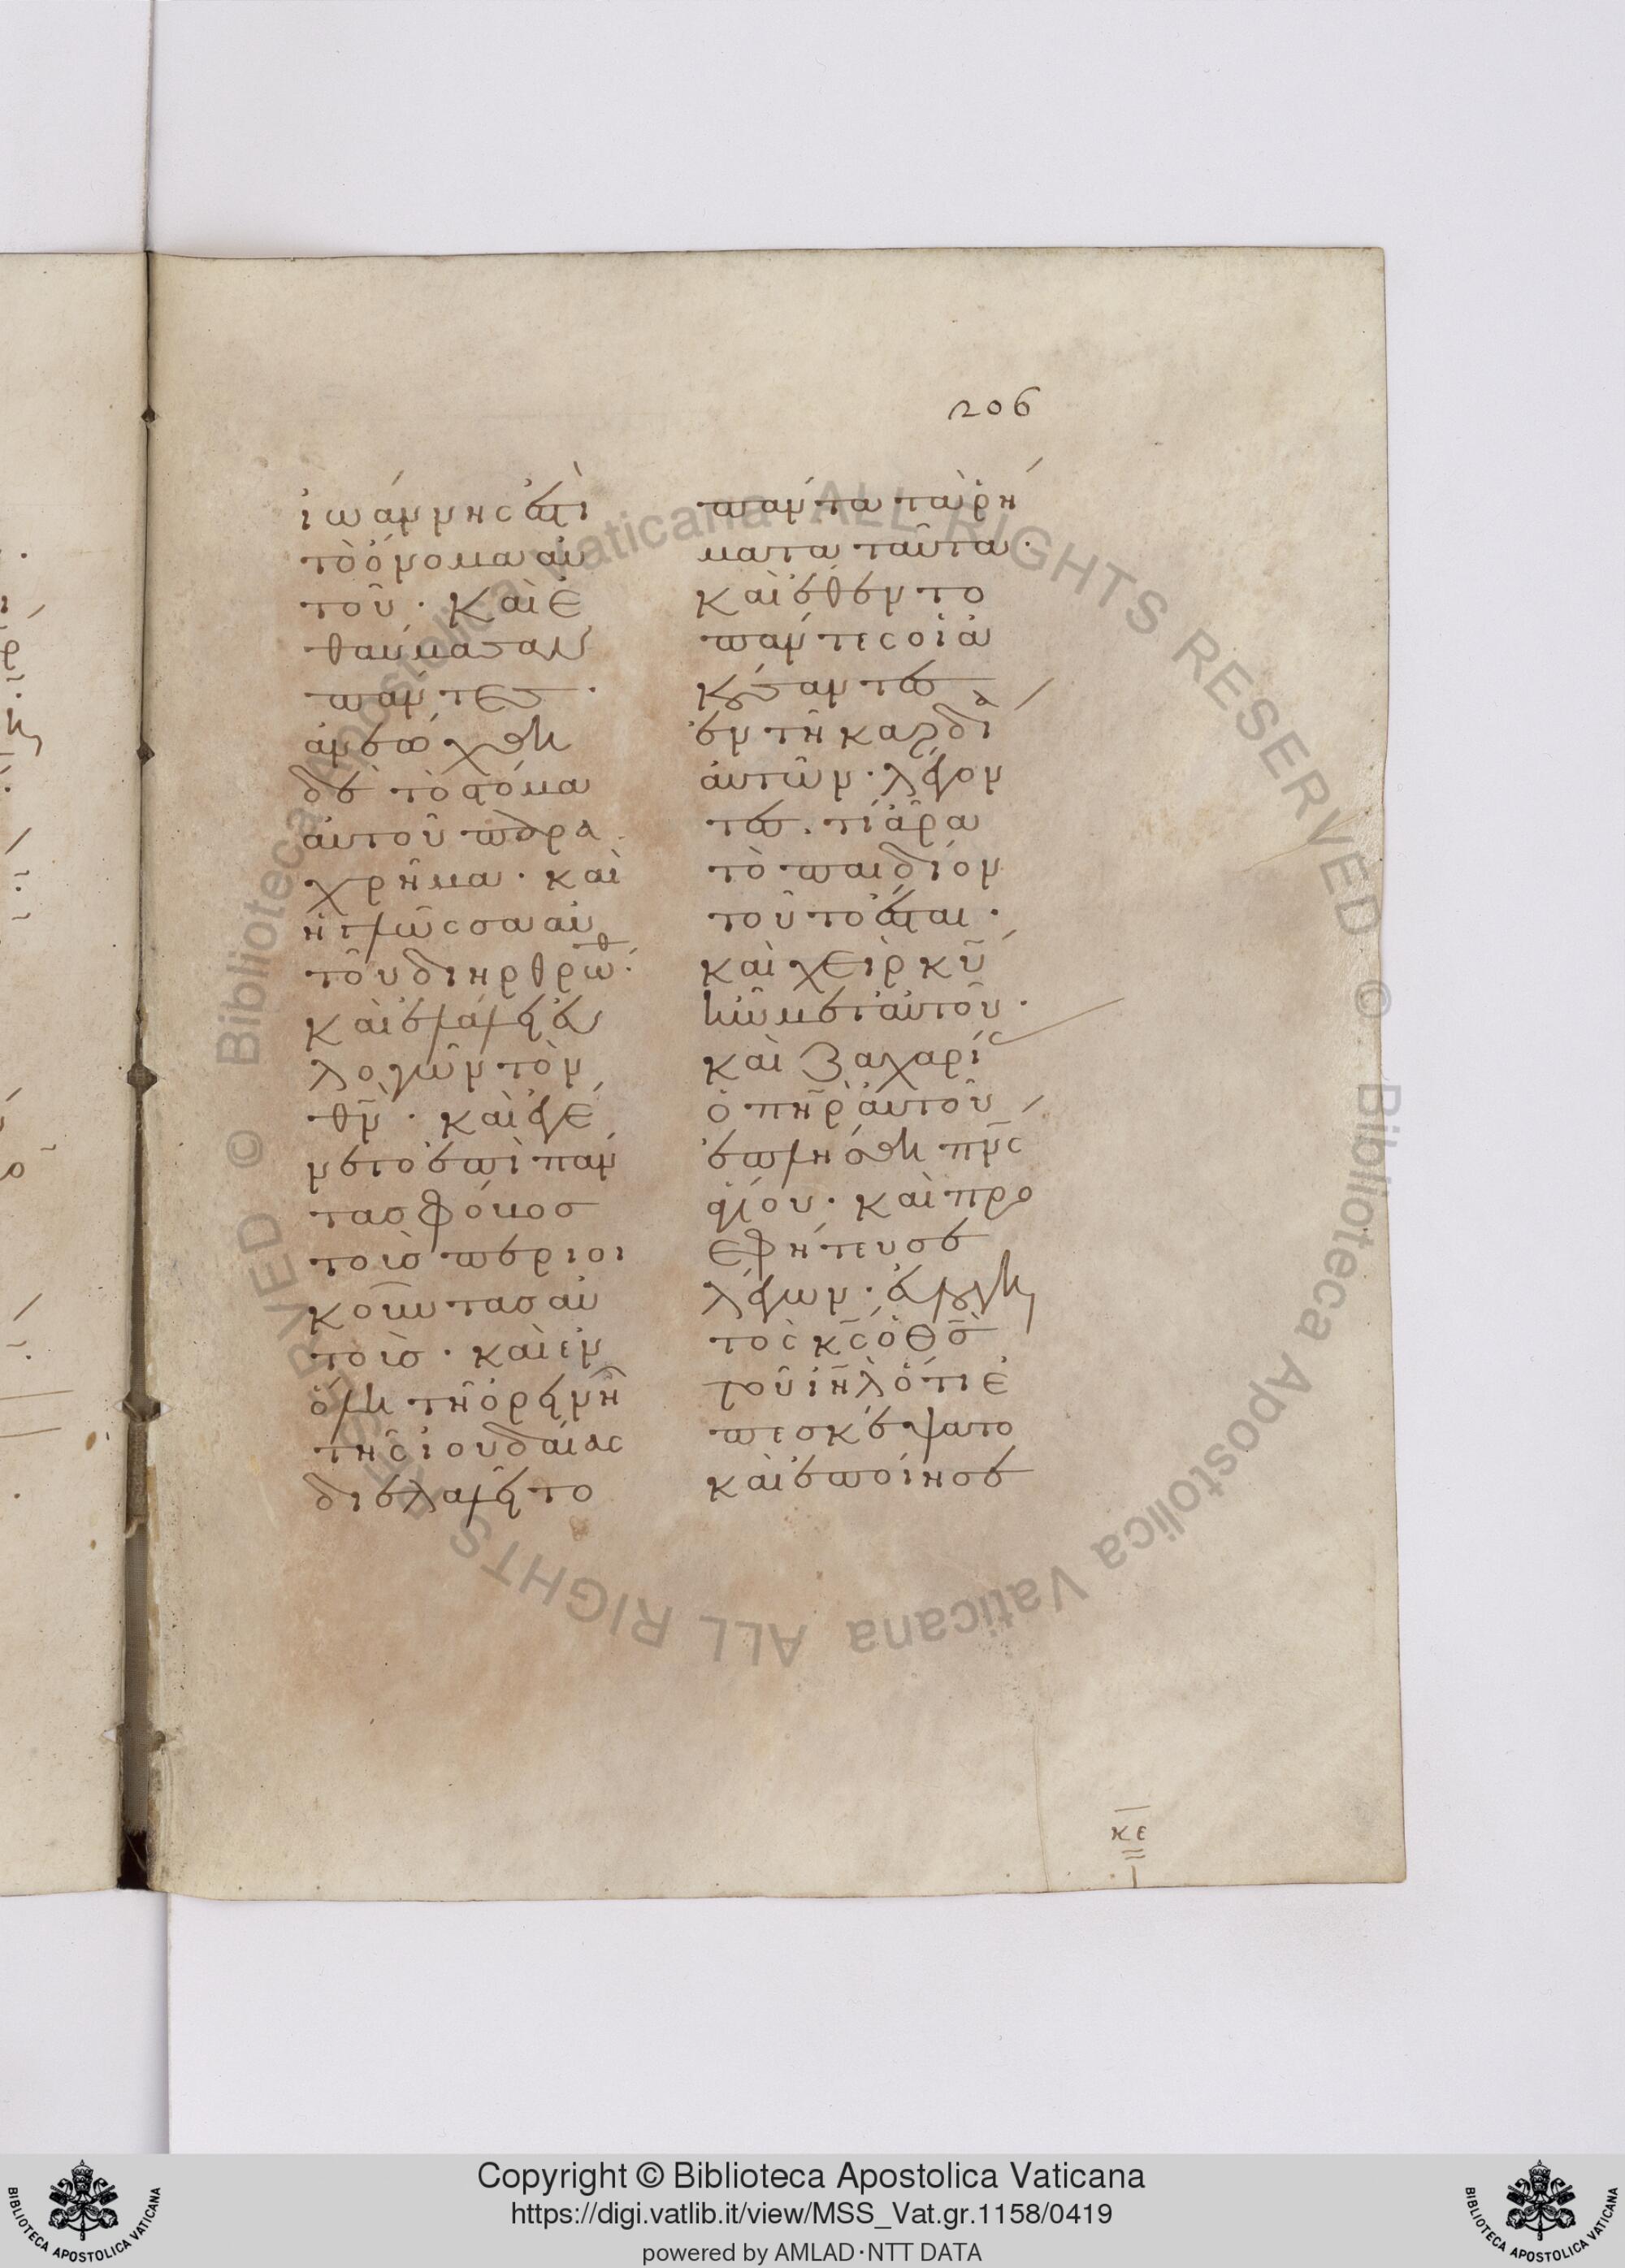 206
ἰωάννης ἐστὶ
τὸ ὄνομα αὐ
τοῦ · Καὶ ἐ
θαύμασαν
πάντες ·
ἀνεώχθη
δὲ τὸ στόμα
αὐτοῦ παρα
χρῆμα · καὶ
ἡ γλῶσσα αὐ
τοῦ διηρθρώθ ·
καὶ ἐλάλει εὐ
λογῶν τὸν
θν̄ · καὶ ἐγέ
νετο ἐπὶ πάν
τας φόβος
τοὺς περιοι
κοῦντας αὐ
τούς · καὶ ἐν
ὅλη τῆ ὀρεινῆ
τῆς ἰουδαίας
διελαλεῖτο
πάντα τὰ ῥή
ματα ταῦτα ·
καὶ ἔθεντο
πάντες οἱ ἀ
κούσαντες
ἐν τῆ καρδί
αὐτῶν · λέγον
τες · τί ἄρα
τὸ παιδίον
τοῦτο ἔσται ·
καὶ χεὶρ κῡ
ἦν μετ' αὐτοῦ ·
καὶ Ζαχαρί
ὁ πη̄ρ αὐτοῦ
ἐπλήσθη πν̄ς
ἁγίου · καὶ προ
εφήτευσε
λέγων · εὐλογη
τὸς κ̄ς ὁ θ̄ς
τοῦ ιη̄λ ὅτι ἐ
πεσκέψατο
καὶ ἐποίησε
κε
Copyright © Biblioteca Apostolica Vaticana
https://digi.vatlib.it/view/MSS_Vat.gr.1158/0419
powered by AMLAD·NTT DATA
BIBLIOTECA APOSTOLICA VATICANA
BIBLIOTECA APOSTOLICA VATICANA
© Biblioteca Apostolica Vaticana ALL RIGHTS RESERVED © Biblioteca Apostolica Vaticana ALL RIGHTS RESERVED